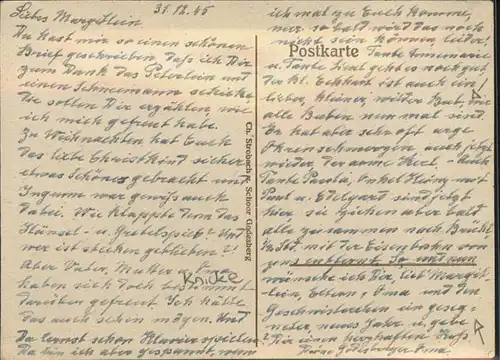 31.12.45
Liebes Margretlein
Du hast mir so einen schönen
Brief geschrieben dass ich Dir
zum Dank das Peterlein und
einen Schneemann schicke
die sollen Dir erzählen, wie
ich mich gefreut habe.
Zu Weihnachten hat Euch
das liebe Christkind sicher
etwas Schönes gebracht und
Ingumm war gewiss auch
dabei. Wie klappte denn das
Hänsel- u. Gretelspiel? Und
wer ist stecken geblieben?!
Aber Vater, Mutter u. Oma
haben sich doch bestimmt
darüber gefreut. Ich hätte
das auch sehn mögen. Und
Du lernst schon Klavierspielen
da bin ich aber gespannt, wenn
Knicke
Ch. Strobach A. Schoor Lindenberg
Postkarte
ich mal zu Euch komme,
nur so bald wird das noch
nicht sein können, leider!
Tante Annemarie
u. Tante Liesl geht es noch gut
der kl. Eckhart ist auch ein
lieber, kleiner, wilder Bub, wie
alle Buben nun mal sind.
Er hat aber sehr oft arge
Ohrenschmerzen auch jetzt
wieder, der arme Kerl. Auch
Tante Paula, Onkel Heinz mit
Paul u. Edelgard sind jetzt
hier sie ziehen aber bald
alle zusammen nach
mit der Eisenbahn von
uns entfernt. So und nun
wünsche ich Dir, lieb Margret-
lein, Eltern, Oma und den
Geschwisterchen ein geseg-
netes, neues Jahr u. gebe
Dir einen herzhaften Kuss
Deine Oma.